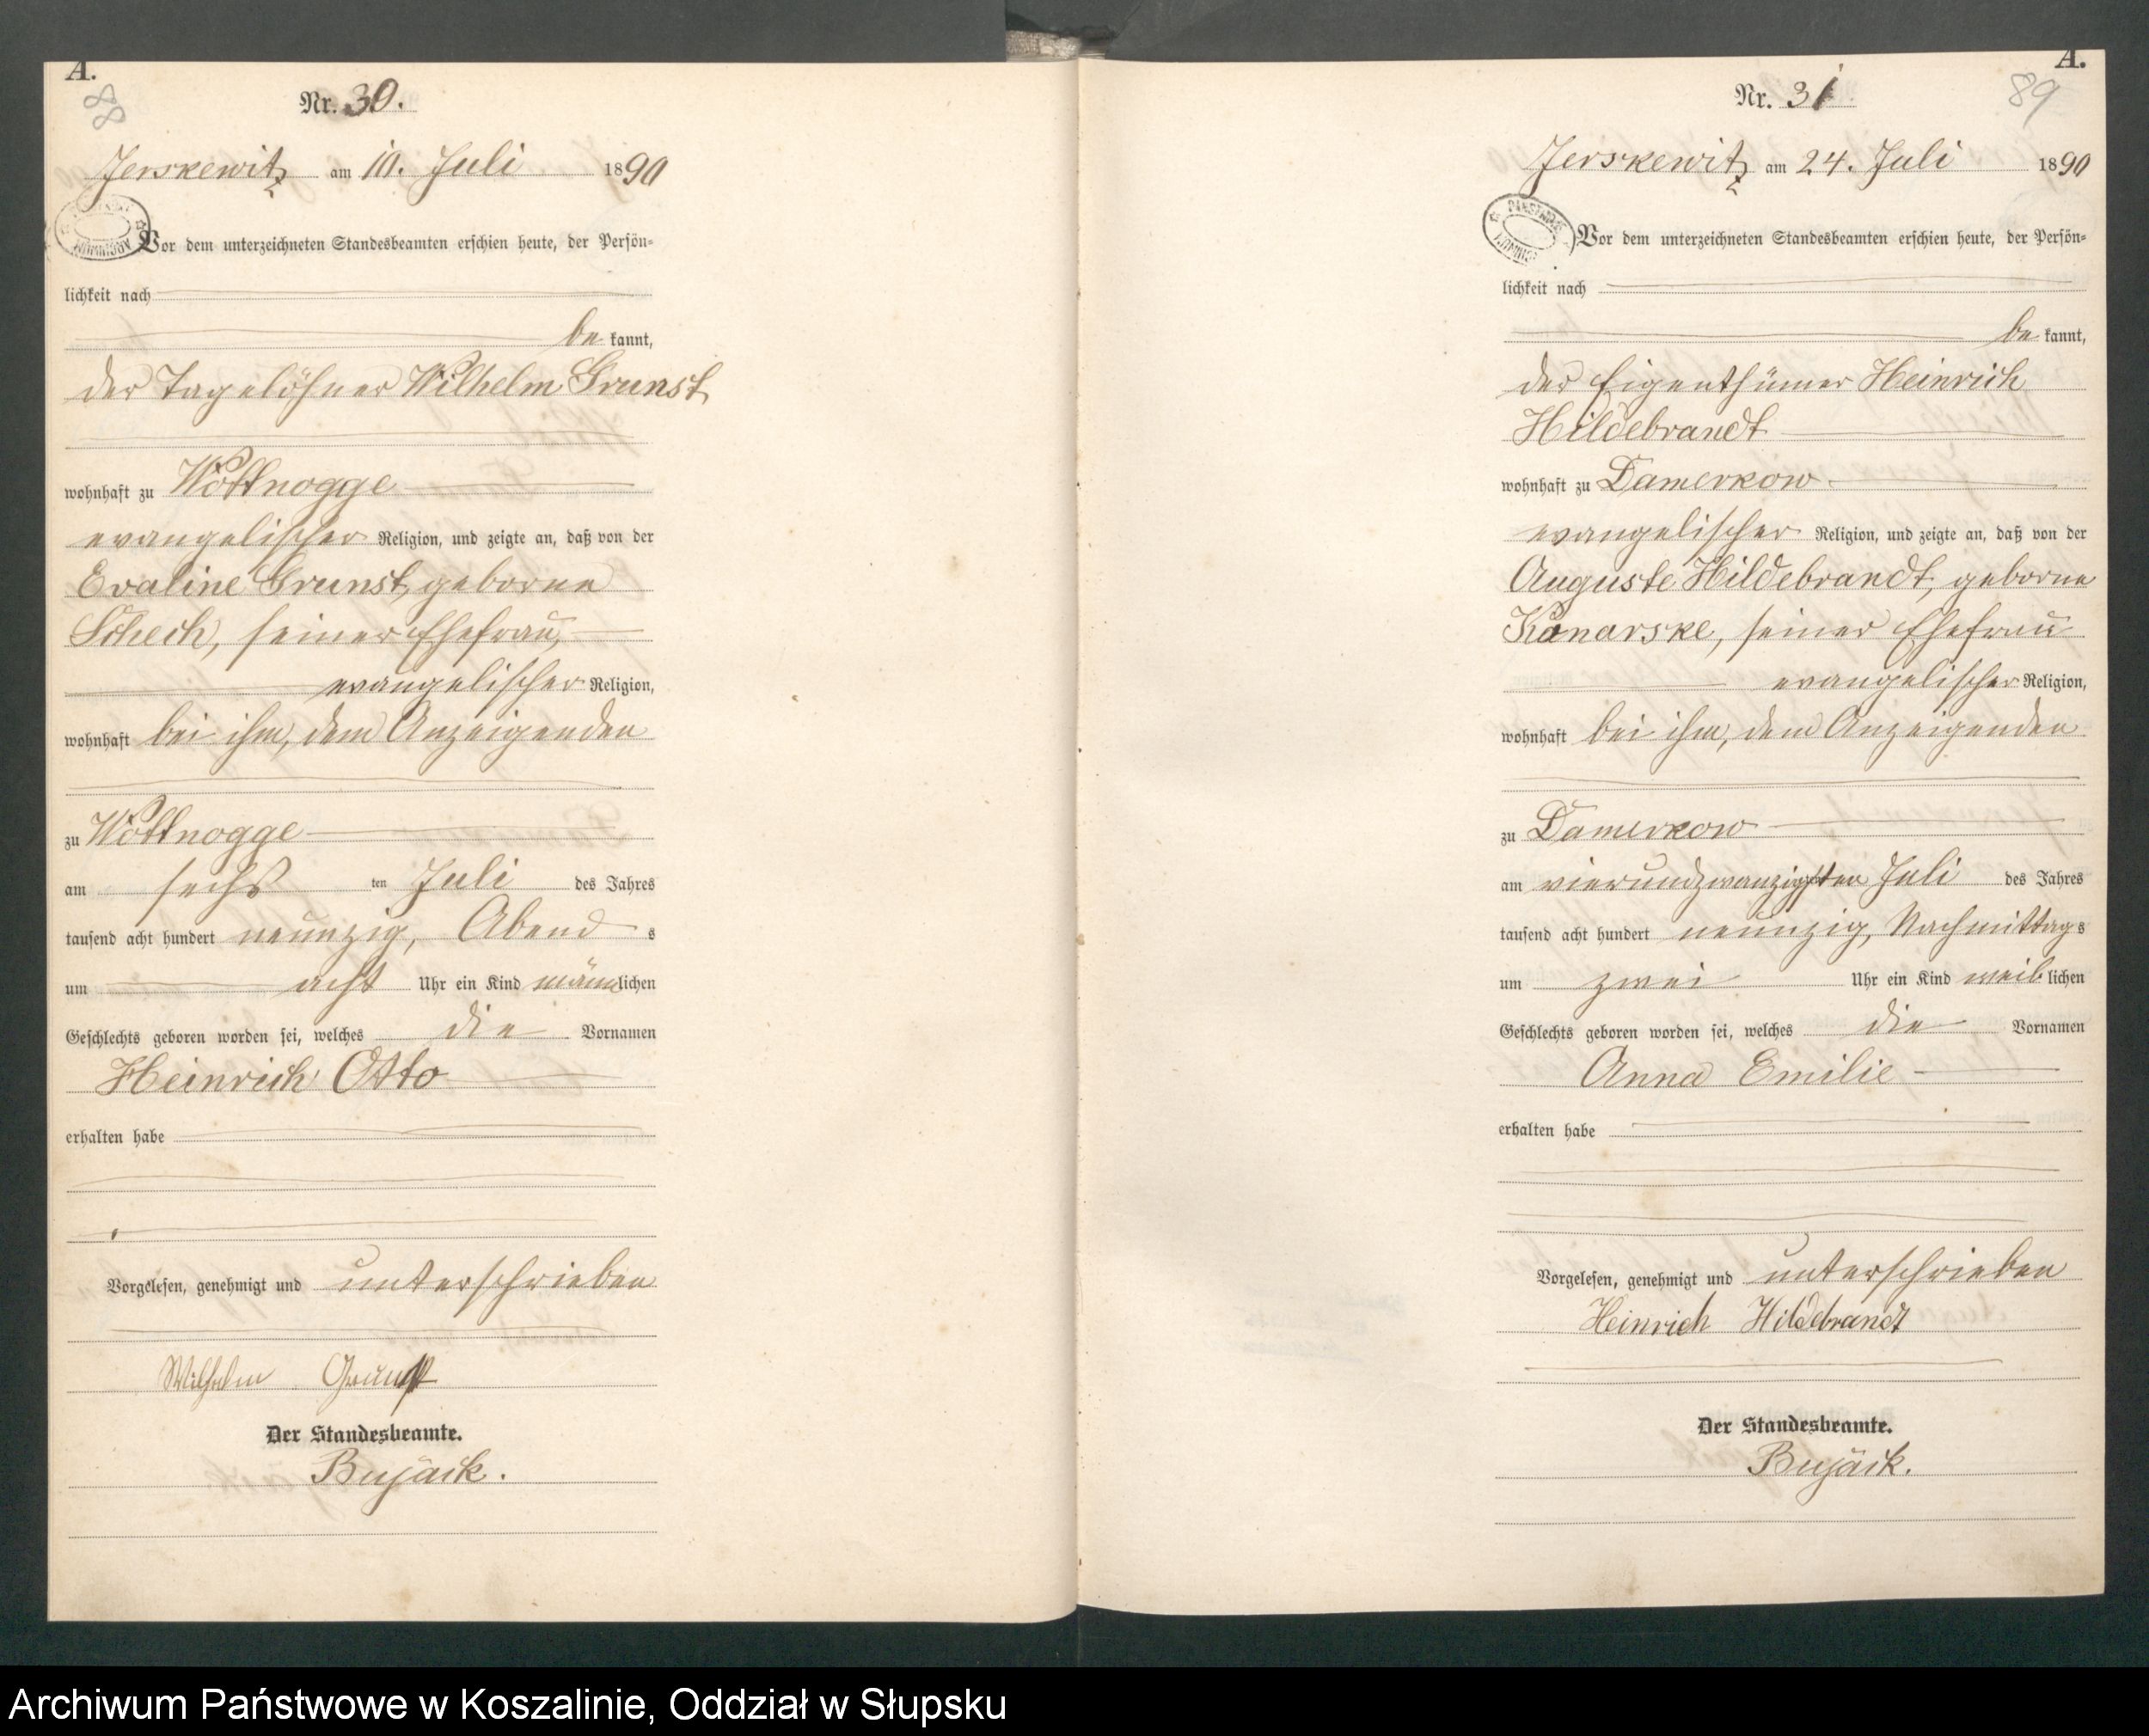 A.
88
Nr. 30.
Jerskewitz am 10. Juli 1890
Vor dem unterzeichneten Standesbeamten erschien heute, der Persön=
lichkeit nach
be kannt,
der Tagelöhner Wilhelm Grunst,
wohnhaft zu Wottnogge
evangelischer Religion, und zeigte an, daß von der
Evaline Grunst, geborne
Schech, seiner Ehefrau,
evangelischer Religion,
wohnhaft bei ihm, dem Anzeigenden
zu Wottnogge
am sechs ten Juli des Jahres
tausend acht hundert neunzig, Abend s
um acht Uhr ein Kind männlichen
Geschlechts geboren worden sei, welches die Vornamen
Heinrich Otto
erhalten habe
Vorgelesen, genehmigt und unterschrieben
Wilhelm Grunst
Der Standesbeamte.
Bujäck.
A.
89
Nr. 31
Jerskewitz am 24. Juli 1890
Vor dem unterzeichneten Standesbeamten erschien heute, der Persön=
lichkeit nach
be kannt,
der Eigenthümer Heinrich
Hildebrandt
wohnhaft zu Damerkow
evangelischer Religion, und zeigte an, daß von der
Auguste Hildebrandt, geborne
Konarske, seiner Ehefrau
evangelischer Religion,
wohnhaft bei ihm, dem Anzeigenden
zu Damerkow
am vierundzwanzigsten Juli des Jahres
tausend acht hundert neunzig, Nachmittag s
um zwei Uhr ein Kind weib lichen
Geschlechts geboren worden sei, welches die Vornamen
Anna Emilie
erhalten habe
Vorgelesen, genehmigt und unterschrieben
Heinrich Hildebrandt
Der Standesbeamte.
Bujäck.
Archiwum Państwowe w Koszalinie, Oddział w Słupsku